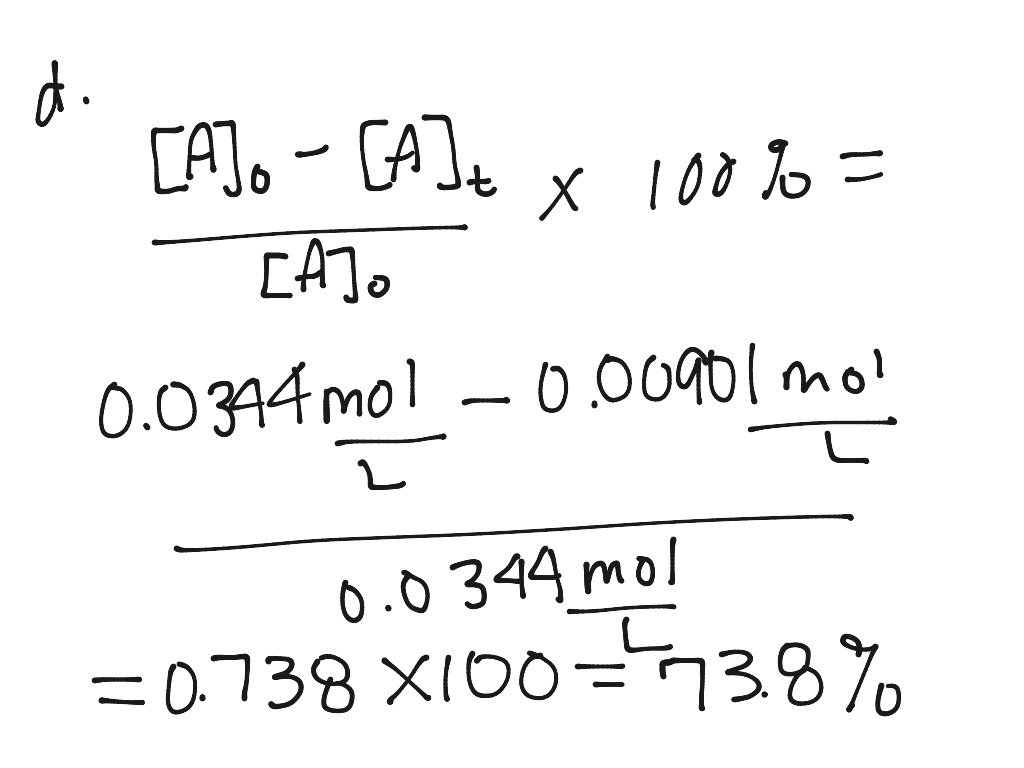 d.
[A]₀ - [A]ₜ x 100% =
[A]₀
0.0344 mol - 0.00901 mol
L L
0.0344 mol
L
= 0.738 X100 = 73.8%